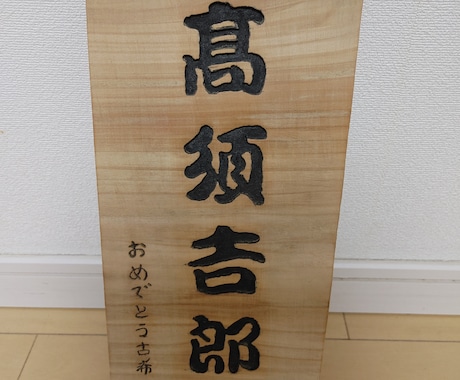 髙須吉郎
おめでとう古希